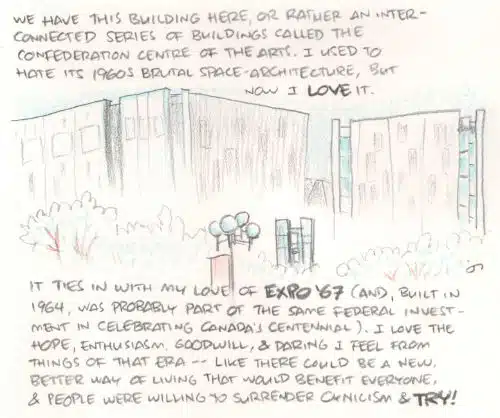 WE HAVE THIS BUILDING HERE, OR RATHER AN INTER-
CONNECTED SERIES OF BUILDINGS CALLED THE
CONFEDERATION CENTRE OF THE ARTS. I USED TO
HATE ITS 1960S BRUTAL SPACE-ARCHITECTURE, BUT
NOW I LOVE IT.
IT TIES IN WITH MY LOVE OF EXPO '67 (AND, BUILT IN
1964, WAS PROBABLY PART OF THE SAME FEDERAL INVEST-
MENT IN CELEBRATING CANADA'S CENTENNIAL). I LOVE THE
HOPE, ENTHUSIASM, GOODWILL, & DARING I FEEL FROM
THINGS OF THAT ERA -- LIKE THERE COULD BE A NEW,
BETTER WAY OF LIVING THAT WOULD BENEFIT EVERYONE,
& PEOPLE WERE WILLING TO SURRENDER CYNICISM & TRY!